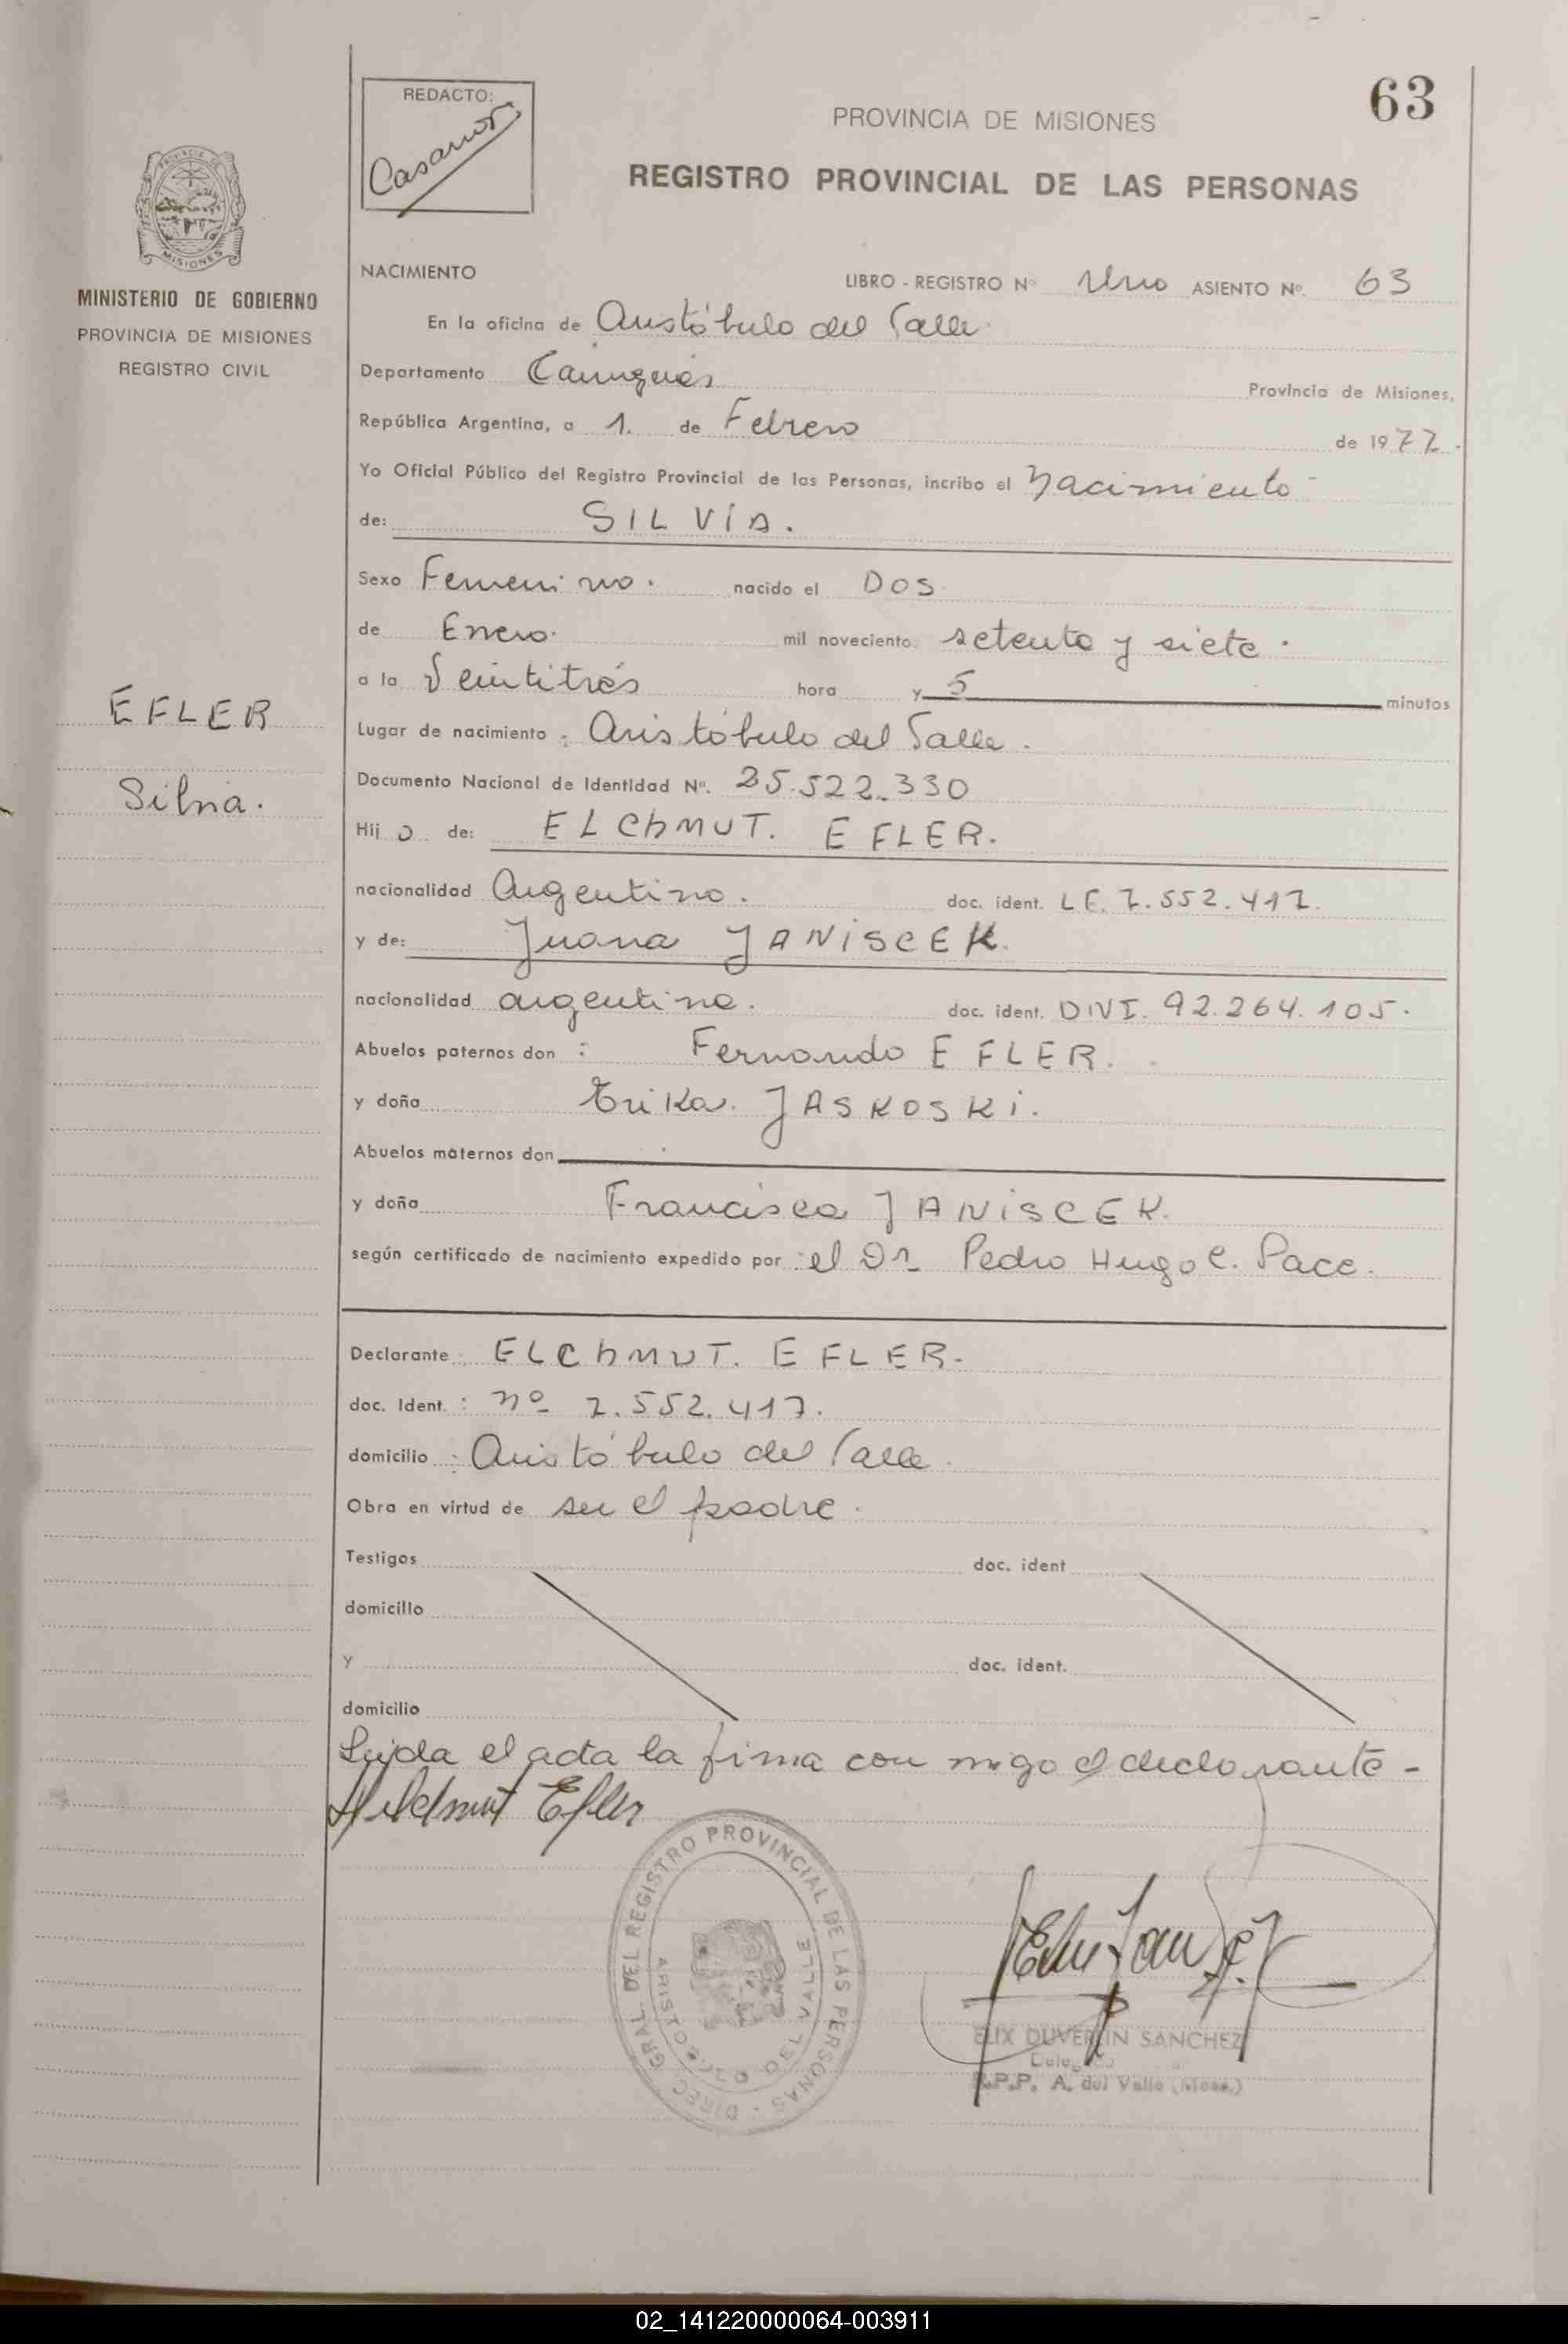 63
REDACTO:
PROVINCIA DE MISIONES
REGISTRO PROVINCIAL DE LAS PERSONAS
PROVINCIA DE
MISIONES
MINISTERIO DE GOBIERNO
PROVINCIA DE MISIONES
REGISTRO CIVIL
EFLER
Silvia.
NACIMIENTO LIBRO - REGISTRO Nº Uno ASIENTO Nº. 63
En la oficina de Aristóbulo del Valle
Departamento Cainguás Provincia de Misiones,
República Argentina, a 1. de Febrero de 1977.
Yo Oficial Público del Registro Provincial de las Personas, incribo el Nacimiento
de: SILVIA.
Sexo Femenino. nacido el Dos
de Enero. mil noveciento setenta y siete.
a la Veintitrés hora y 5 minutos
Lugar de nacimiento: Aristóbulo del Valle.
Documento Nacional de Identidad Nº. 25.522.330
Hij a de: ELCHMUT. EFLER.
nacionalidad Argentino. doc. ident. LE. 7.552.417.
y de: Juana JANISCEK.
nacionalidad argentina. doc. ident. DNI. 92.264.105.
Abuelos paternos don: Fernando EFLER.
y doña Erika. JASKOSKI.
Abuelos maternos don
y doña Francisca JANISCEK.
según certificado de nacimiento expedido por: el Dr. Pedro Hugo C. Pace.
Declarante: ELCHMUT. EFLER.
doc. Ident.: nº 7.552.417.
domicilio: Aristóbulo del Valle.
Obra en virtud de ser el padre.
Testigos doc. ident
domicilio
y doc. ident.
domicilio
Leída el acta la firma con migo el declarante-
Heldmut Efler
DIREC. GRAL. DEL REGISTRO PROVINCIAL DE LAS PERSONAS
ARISTOBULO DEL VALLE
ELIX DUVERLIN SANCHEZ
R.P.P. A. del Valle (Mnes.)
02_141220000064-003911